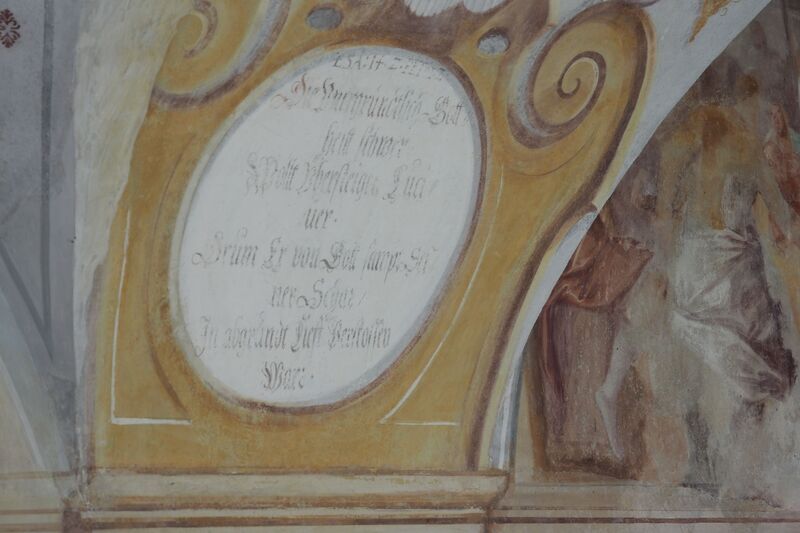 Die Unergründtlich Gott¬
heit schwer
Wollt Ubersteigen Luci¬
uer.
Drum Er von Gott sampt Sei¬
ner Schar/
In abgrundt Verstossen
Warr.